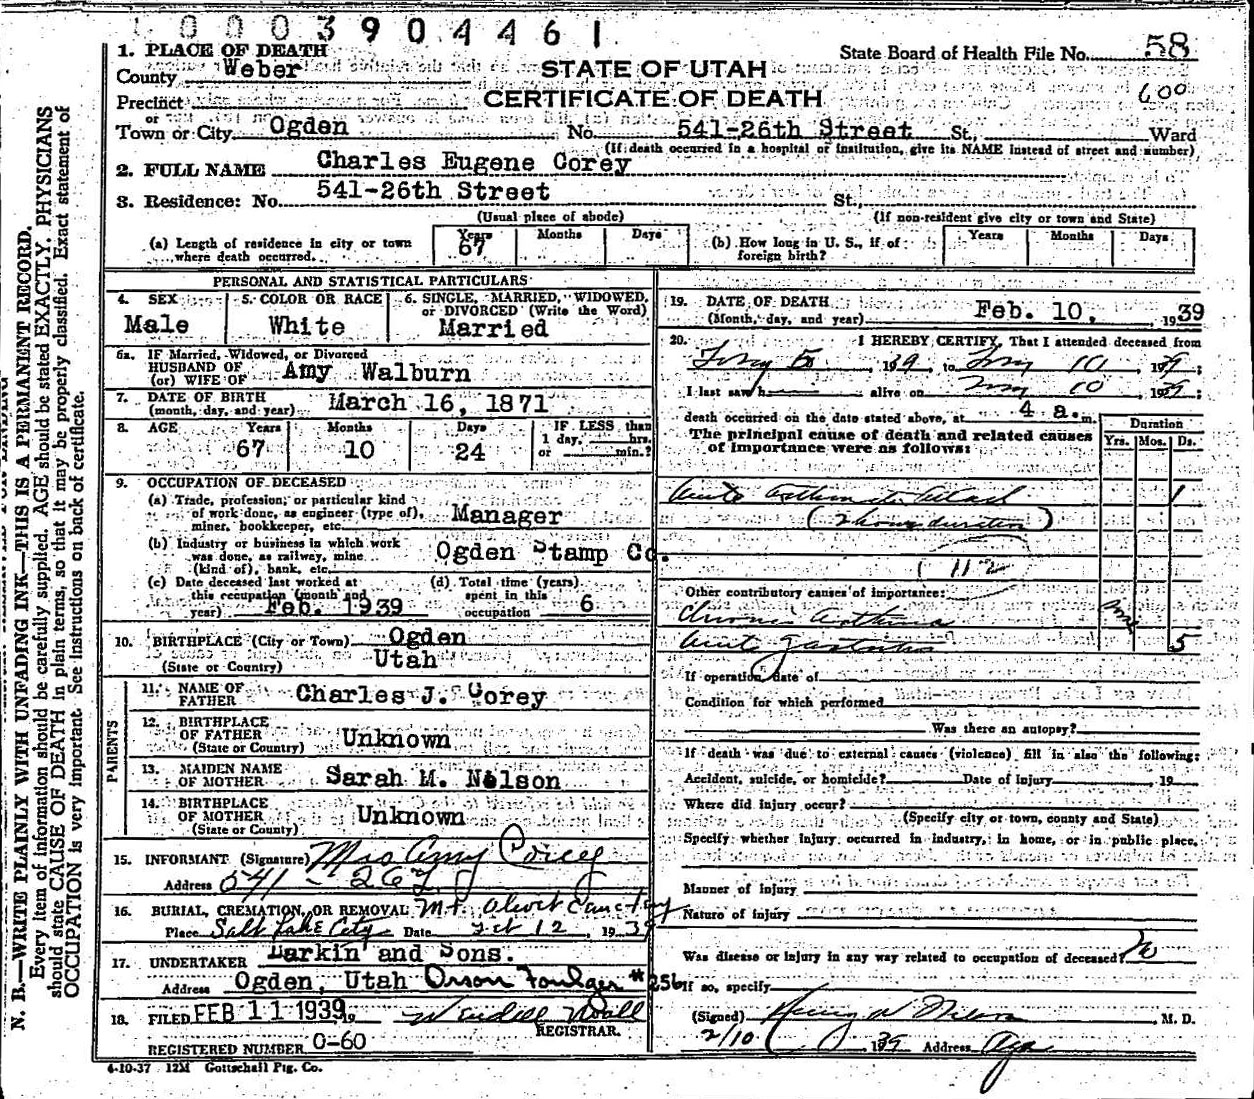 0003904461
1. PLACE OF DEATH
State Board of Health File No. 58
County Weber
STATE OF UTAH
600
Precinct
CERTIFICATE OF DEATH
or
Town or City Ogden No. 541-26th Street St., Ward
(If death occurred in a hospital or institution, give its NAME instead of street and number)
2. FULL NAME Charles Eugene Corey
3. Residence: No. 541-26th Street St.,
(Usual place of abode) (If non-resident give city or town and State)
(a) Length of residence in city or town where death occurred. Years 67 Months Days
(b) How long in U. S., if of foreign birth? Years Months Days
PERSONAL AND STATISTICAL PARTICULARS
4. SEX Male
5. COLOR OR RACE White
6. SINGLE, MARRIED, WIDOWED, or DIVORCED (Write the Word) Married
6a. IF Married, Widowed, or Divorced
HUSBAND OF
(or) WIFE OF Amy Walburn
7. DATE OF BIRTH
(month, day, and year) March 16, 1871
8. AGE Years 67 Months 10 Days 24 IF LESS than 1 day, hrs. or min.?
9. OCCUPATION OF DECEASED
(a) Trade, profession, or particular kind
of work done, as engineer (type of),
miner, bookkeeper, etc. Manager
(b) Industry or business in which work
was done, as railway, mine
(kind of), bank, etc. Ogden Stamp Co.
(c) Date deceased last worked at
this occupation (month and
year) Feb. 1939
(d) Total time (years)
spent in this
occupation 6
10. BIRTHPLACE (City or Town) Ogden
(State or Country) Utah
PARENTS
11. NAME OF
FATHER Charles J. Corey
12. BIRTHPLACE
OF FATHER
(State or Country) Unknown
13. MAIDEN NAME
OF MOTHER Sarah M. Nelson
14. BIRTHPLACE
OF MOTHER
(State or County) Unknown
15. INFORMANT (Signature) Mrs Amy Corey
Address 541 - 26
16. BURIAL, CREMATION, OR REMOVAL Mt. Olivet
Place Salt Lake City Date Feb 12, 1939
17. UNDERTAKER Larkin and Sons.
Address Ogden, Utah Orson Foulger #256
18. FILED FEB 11 1939, 19 Wendell Noall
REGISTRAR.
REGISTERED NUMBER 0-60
4-10-37 12M Gottschall Ptg. Co.
19. DATE OF DEATH
(Month, day, and year) Feb. 10, 1939
20. I HEREBY CERTIFY, That I attended deceased from
, 1939, to 10, 1939;
I last saw h alive on 10, 1939;
death occurred on the date stated above, at 4 a. m.
The principal cause of death and related causes
of importance were as follows:
Duration
Yrs. Mos. Ds.
Acute Asthmatic Attack 1
(2 hours duration)
(112
Other contributory causes of importance:
Chronic Asthma
Acute Gastritis 5
If operation, date of
Condition for which performed
Was there an autopsy?
If death was due to external causes (violence) fill in also the following:
Accident, suicide, or homicide? Date of Injury , 19
Where did injury occur?
(Specify city or town, county and State)
Specify whether injury occurred in industry, in home, or in public place.
Manner of injury
Nature of injury
Was disease or injury in any way related to occupation of deceased? No
If so, specify
(Signed) M. D.
2/10, 1939 Address
N. B.—WRITE PLAINLY WITH UNFADING INK—THIS IS A PERMANENT RECORD.
Every item of information should be carefully supplied. AGE should be stated EXACTLY. PHYSICIANS
should state CAUSE OF DEATH in plain terms, so that it may be properly classified. Exact statement of
OCCUPATION is very important. See instructions on back of certificate.